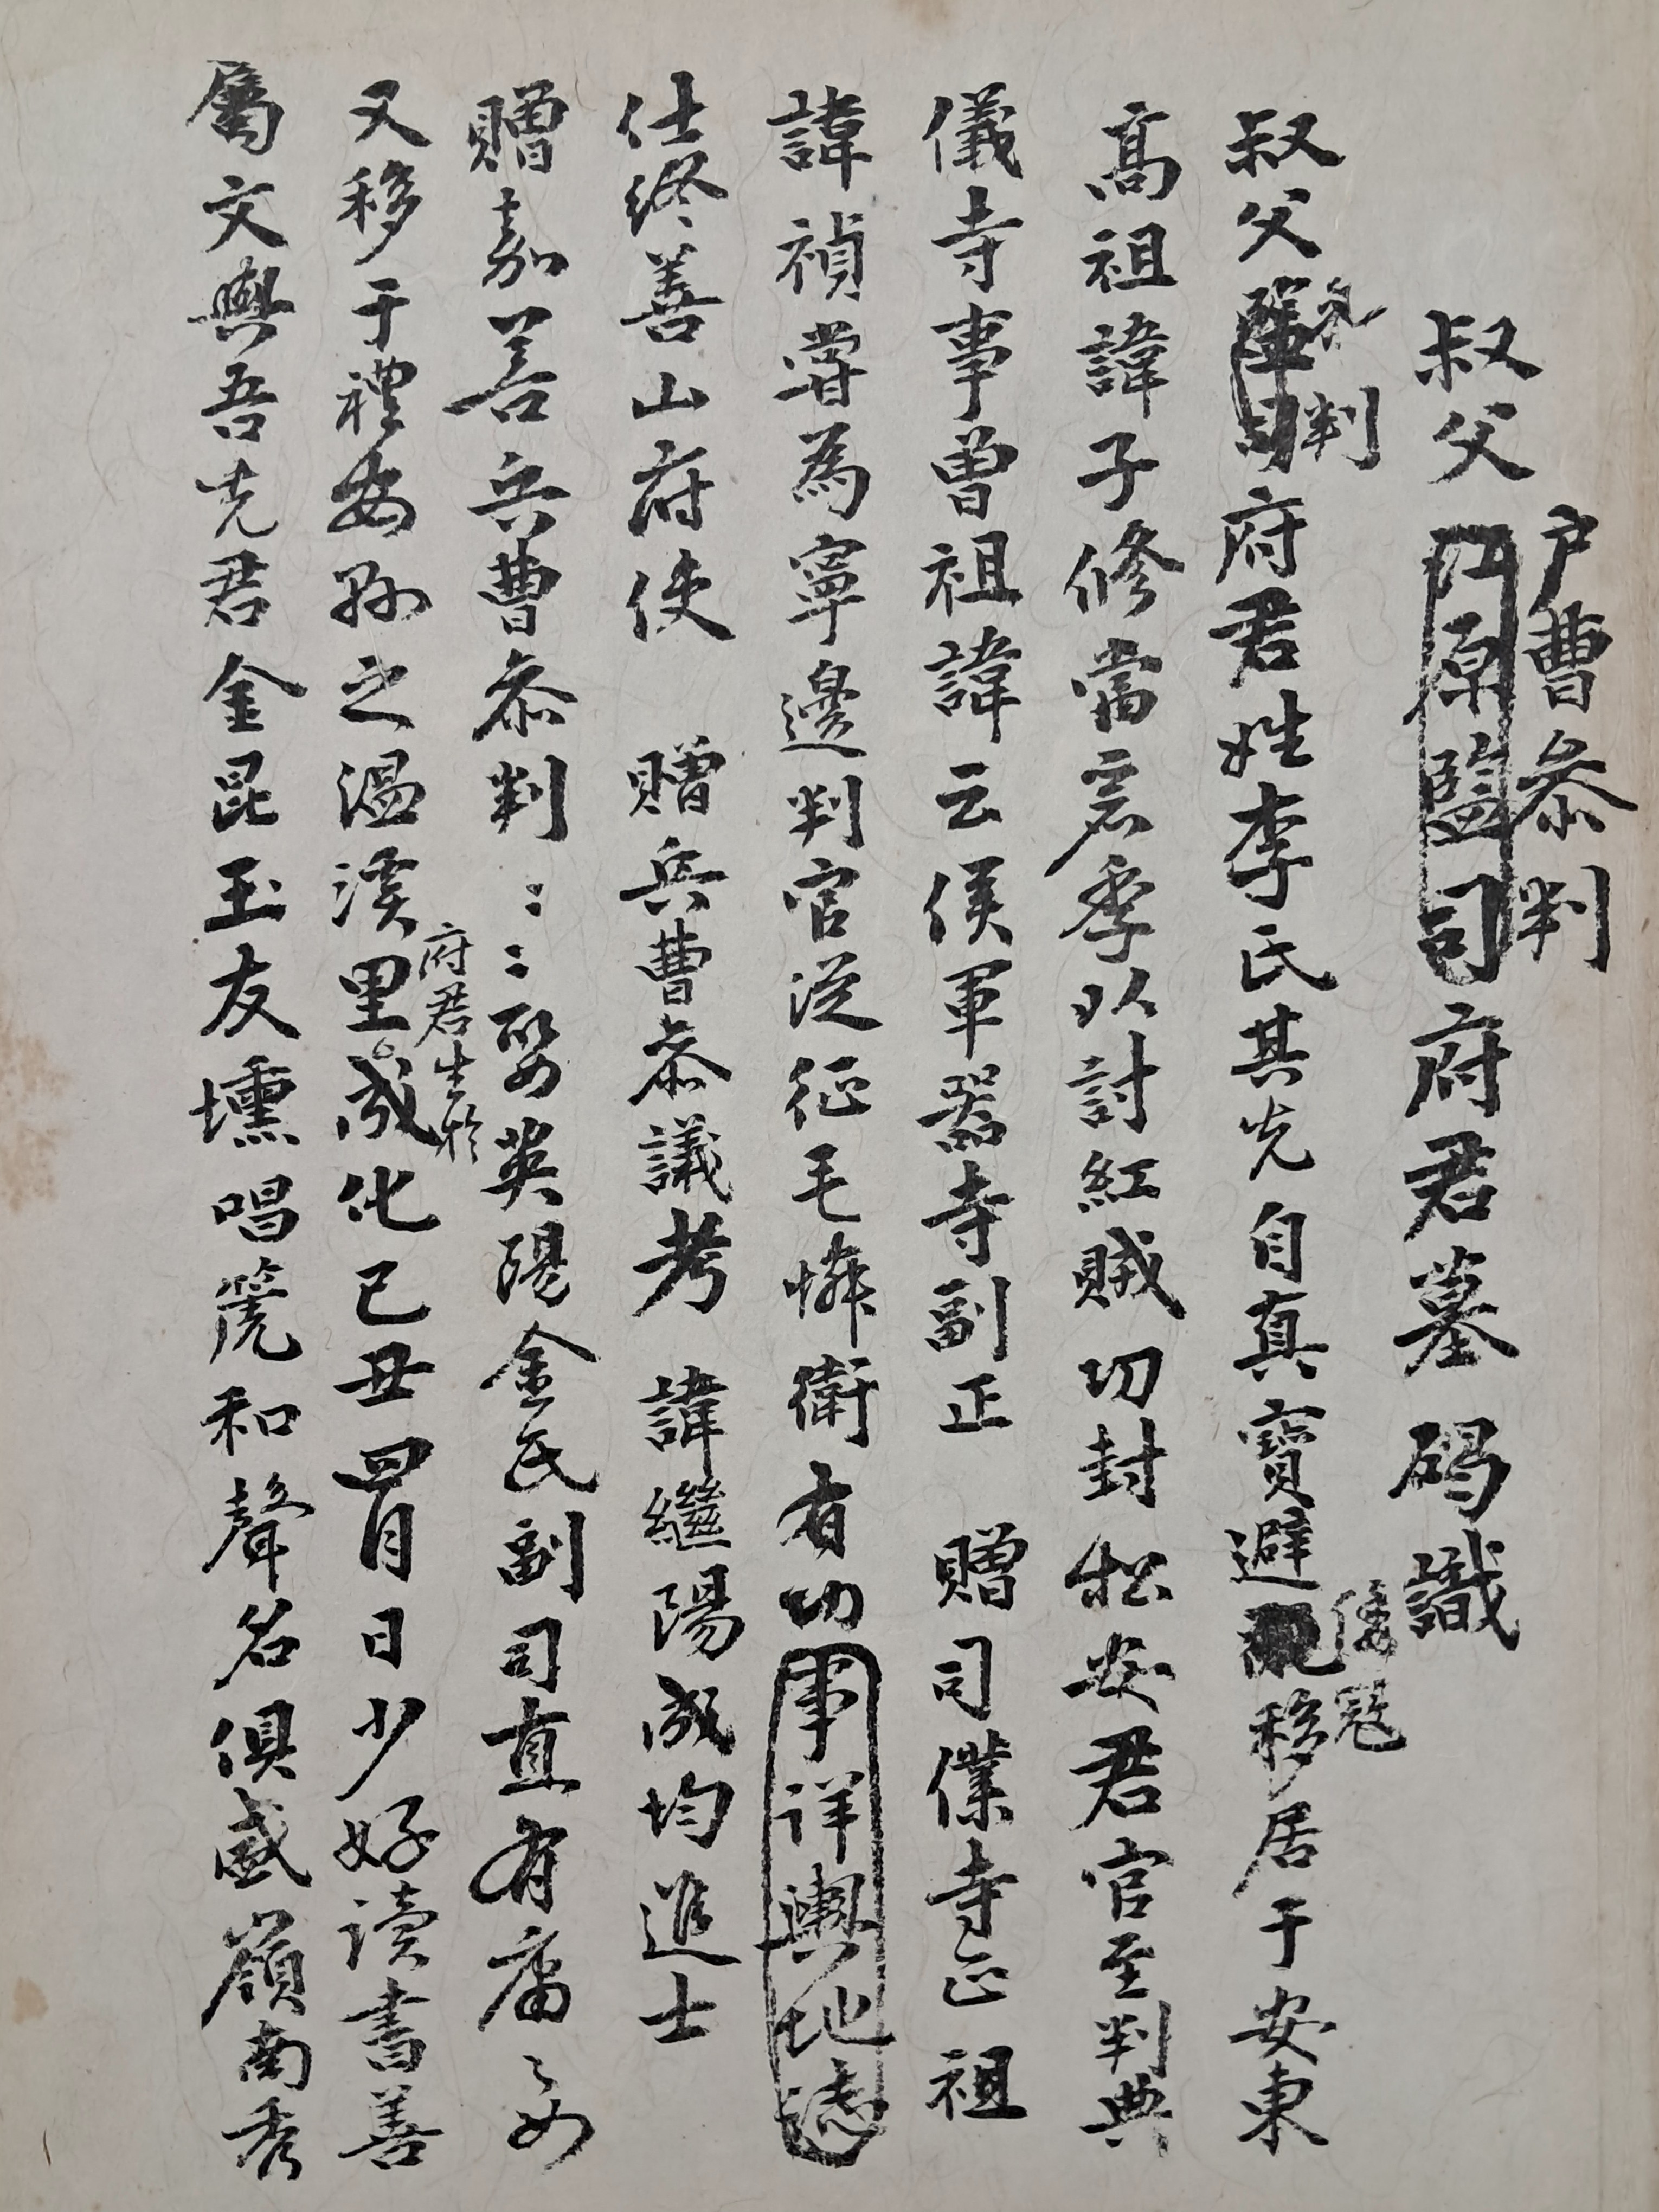 戶曹叅判
叔父江原監司府君墓碣識
叅判
倭冠
叔父監司府君姓李氏其先自真寶避移居于安東
高祖諱子修當麗季以討紅賊功封松安君官至判典
儀寺事曾祖諱云侯軍器寺副正 贈司僕寺正祖
諱禎嘗為寧邊判官從征毛憐衛有功事詳輿地誌
仕終善山府使 贈兵曹叅議考 諱繼陽成均進士
贈嘉善兵曹叅判::娶英陽金氏副司直有庸之女
府君生於
又移于禮安縣之溫溪里成化己丑 月日少好讀書善
屬文與吾先君金昆玉友壎唱篪和聲名俱盛嶺南秀